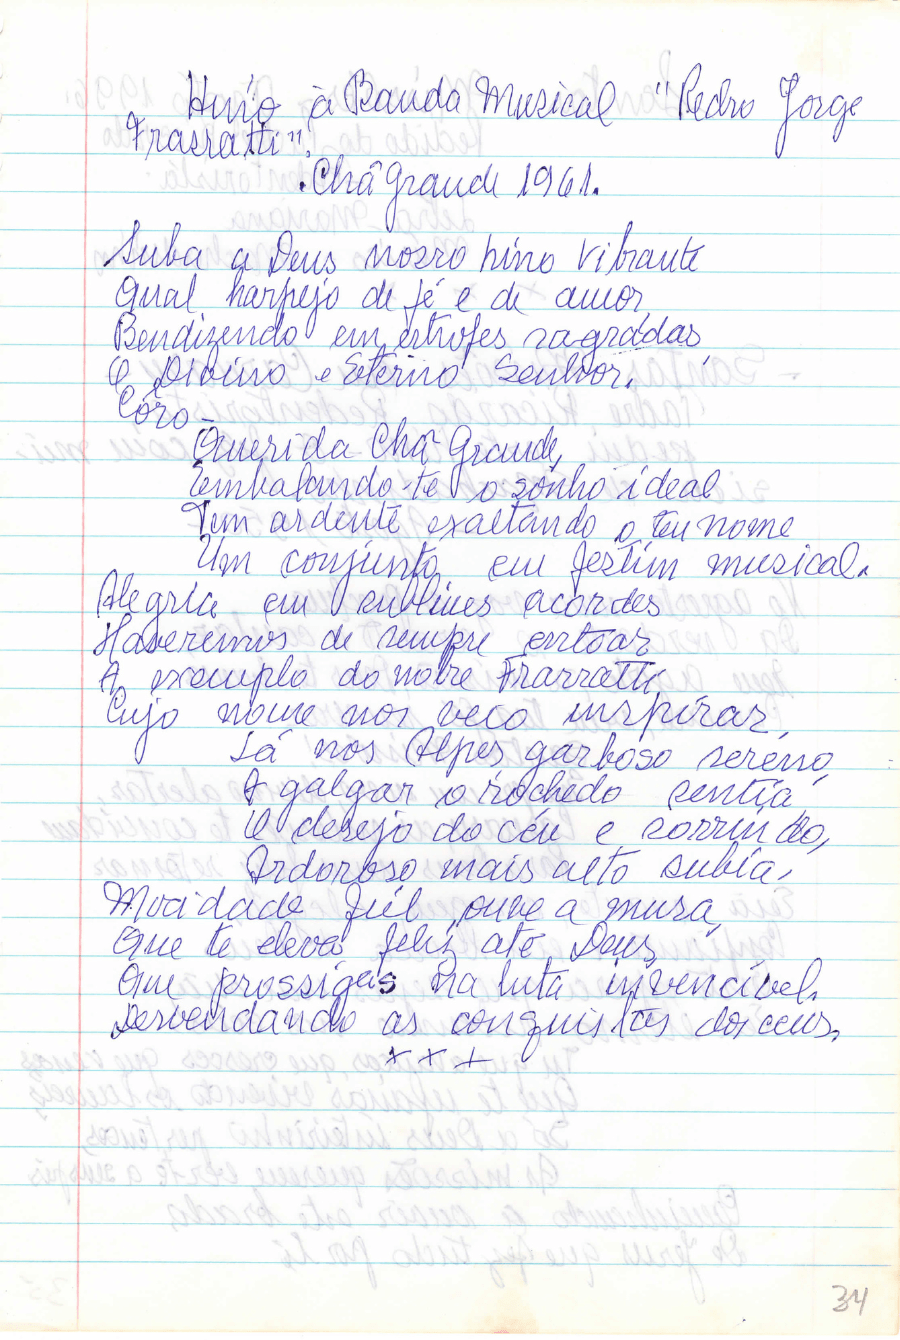 Hino à Banda Musical "Pedro Jorge
Frassatti".
. Chã Grande 1961.
Suba a Deus nosso hino vibrante
Qual harpejo de fé e de amor,
Bendizendo em estrofes sagradas
O Divino e Eterno Senhor.
Côro -
Querida Chã Grande,
Embalando-te o sonho ideal
Tem ardente exaltando o teu nome
Um conjunto em festim musical.
Alegria em sublimes acordes
Haveremos de sempre entoar
A exemplo do nobre Frassatti,
Cujo nome nos veio inspirar,
Lá nos Alpes garboso sereno,
A galgar o rochedo sentia
O desejo do céu e sorrindo,
Ardoroso mais alto subia.
Mocidade fiel, ouve a musa,
Que te eleva feliz até Deus,
Que prossigas na luta invencível.
Desvendando as conquistas dos céus.
x x x
34